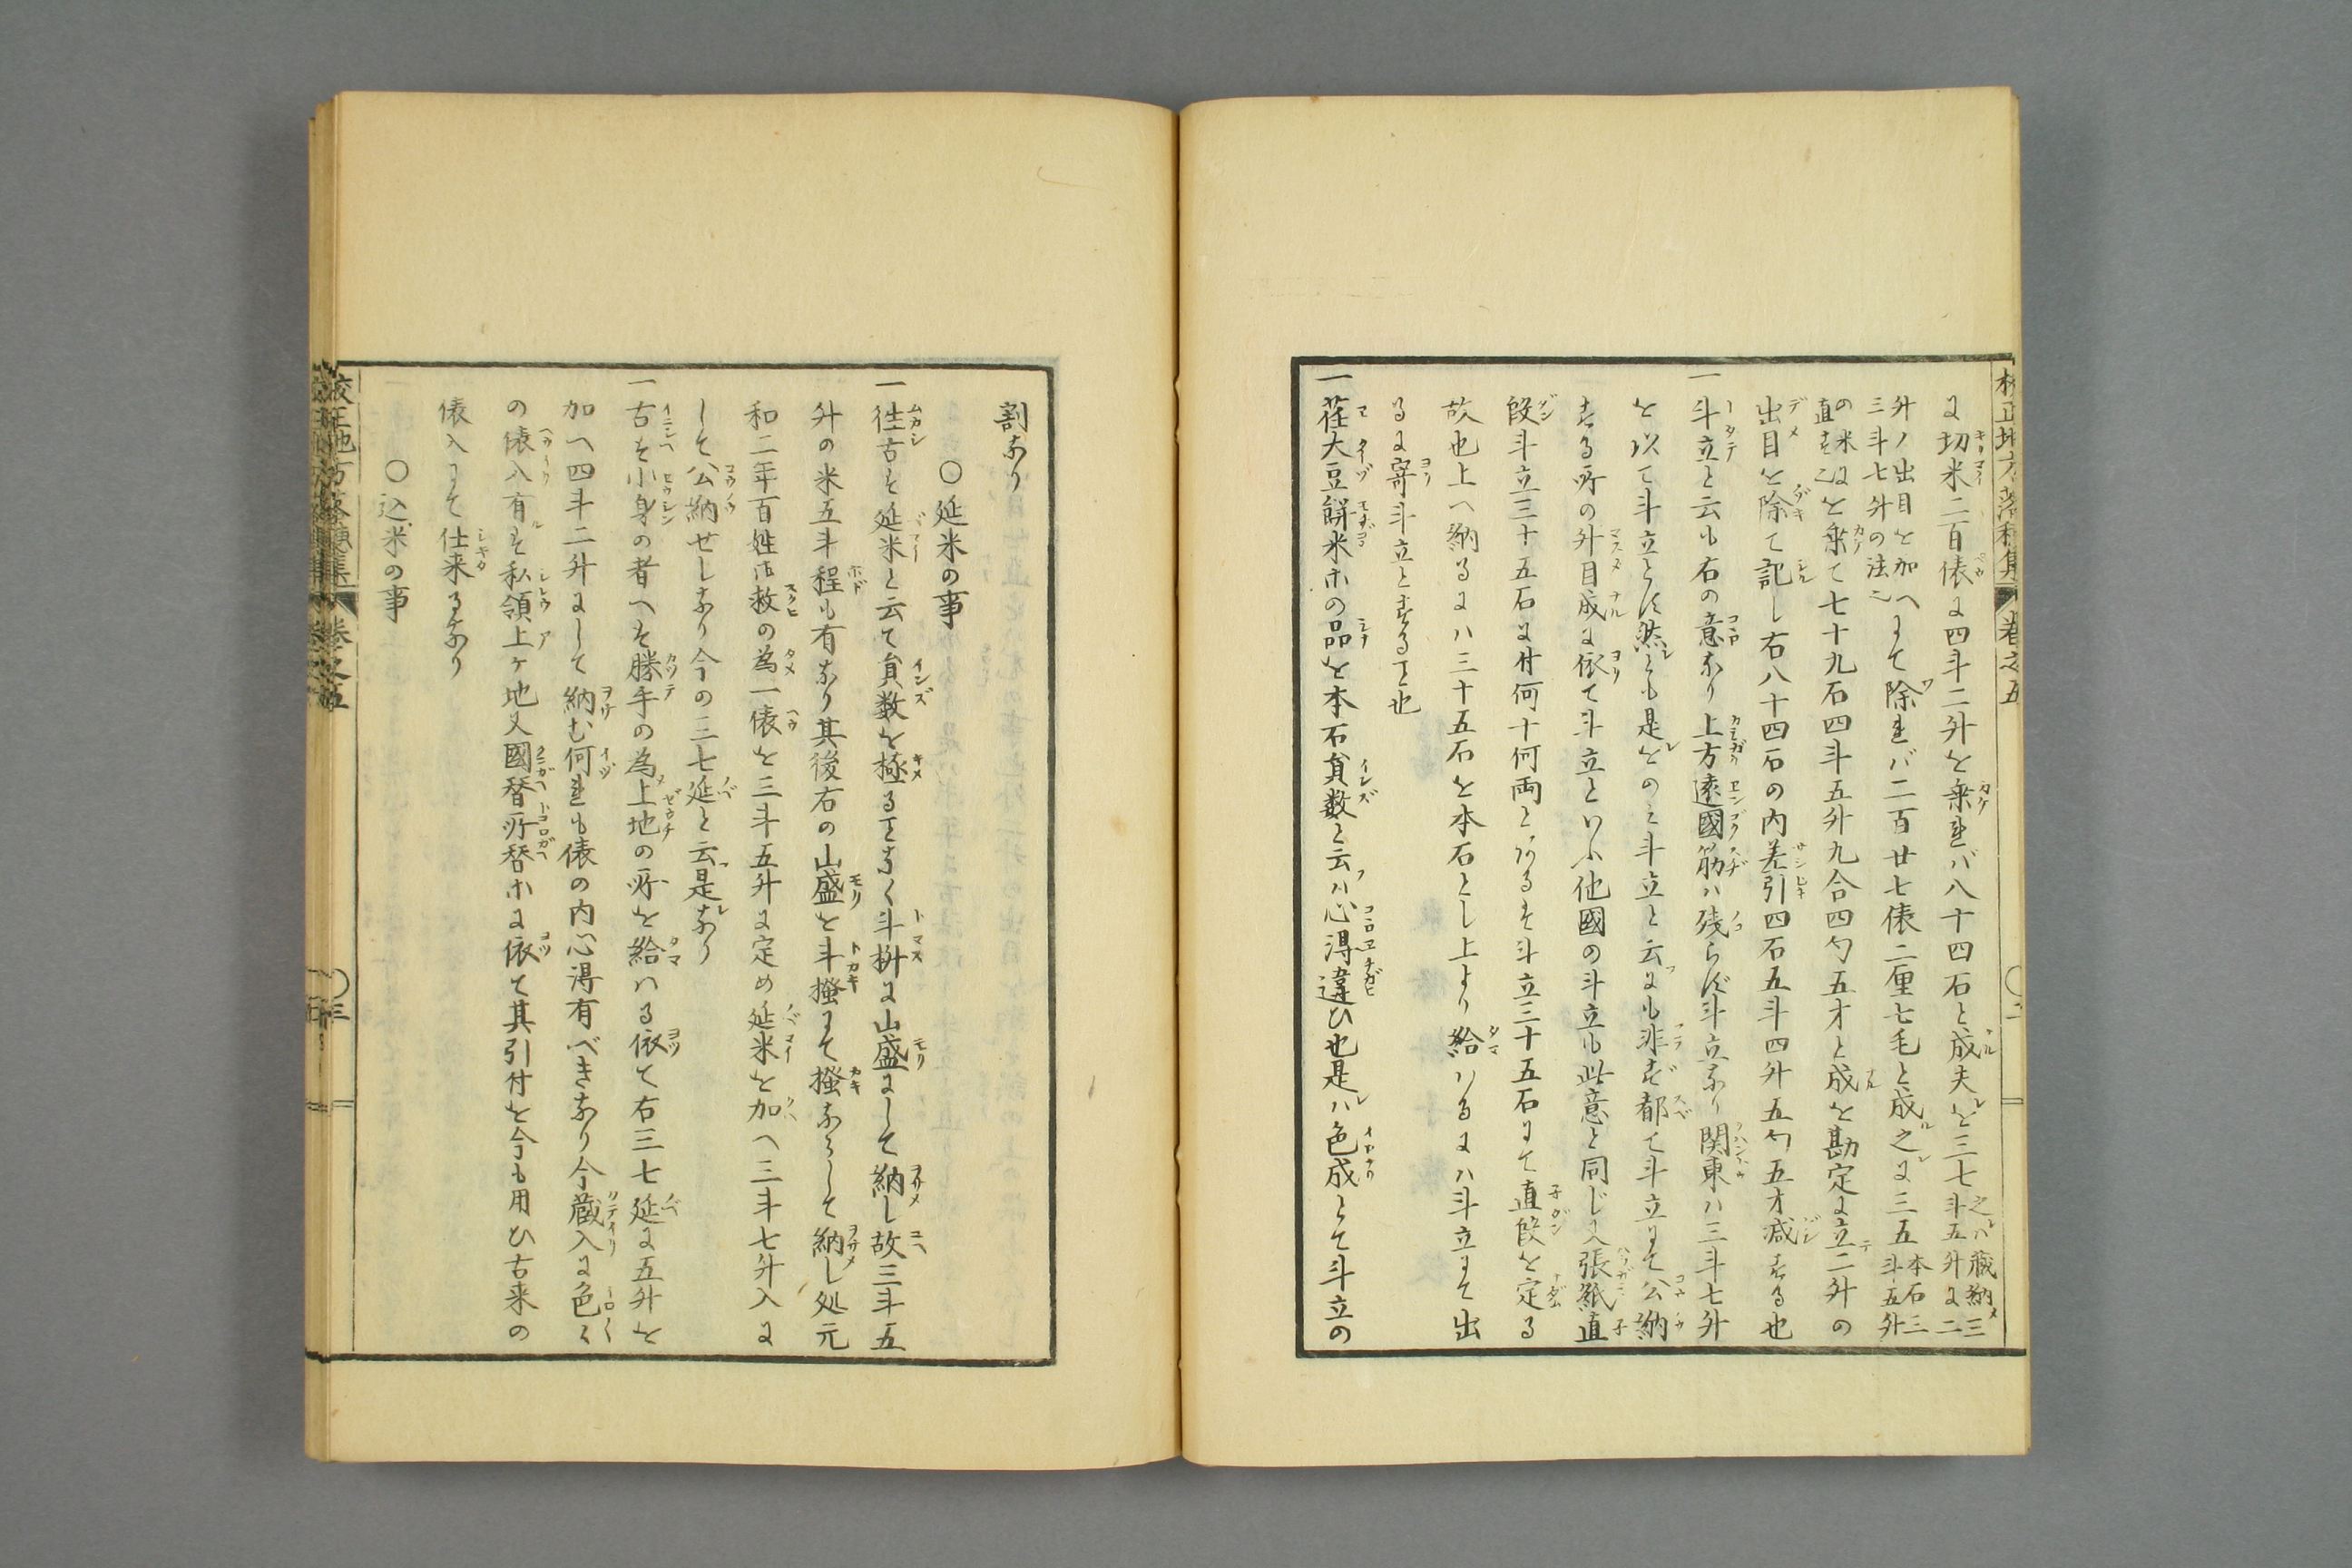 校正地方落穂集 巻之五
に切米二百俵に四斗二升を乗ればバ八十四石と成夫を三七之ハ蔵納メ三斗五升に二
升ノ出目を加へ三斗七升の法ニて除ればバ二百廿七俵二厘七毛と成之に三五本石三斗五升
の米に直すを乗て七十九石四斗五升九合四勺五才と成を勘定に立二升の
出目を除て記し右八十四石の内差引四石五斗四升五勺五才減ずる也
一斗立と云も右の意なり上方遠國筋ハ残らず斗立なり関東ハ三斗七升
を以て斗立とす然れども是をのミ斗立と云にも非ず都て斗立にて公納
する所の升目成に依て斗立といふ他國の斗立も此意と同じに入張紙直
段斗立三十五石に付何十何両とあるは斗立三十五石にて直段を定る
故也上へ納るにハ三十五石を本石とし上より給ハるにハ斗立にて出
るに寄斗立とする也
一荏大豆餅米ホの品を本石員数と云ハ心得違ひ也是ハ色成とて斗立の
割なり
○延米の事
一往古は延米と云て員数を極ることなく斗桝に山盛にして納し故三斗五
升の米五斗程も有なり其後右の山盛を斗掻にて掻ならして納し処元
和二年百姓御救の為一俵を三斗五升に定め延米を加へ三斗七升入に
して公納せしなり今の三七延と云是なり
一古は小身の者へは勝手の為上地の所を給ハる依て右三七延に五升を
加へ四斗二升にして納む何れも俵の内心得有べきなり今蔵入に色々
の俵入有は私領上ヶ地又國替所替ホに依て其引付を今も用ひ古来の
俵入にて仕来るなり
○込米の事
校正地方落穂集 巻之五